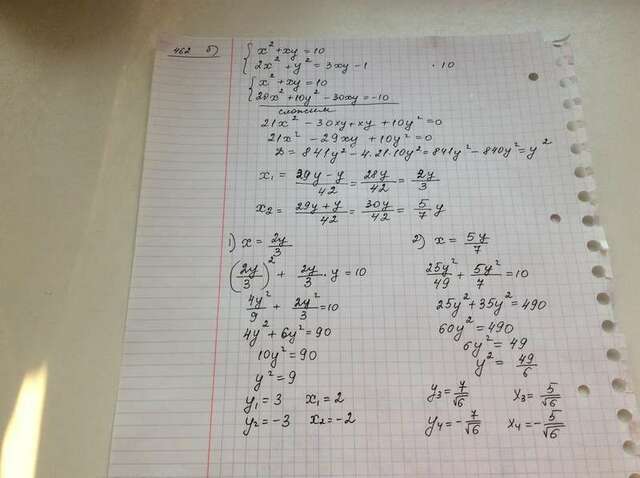 462 б) { x² + xy = 10
2x² + y² = 3xy - 1 · 10
{ x² + xy = 10
20x² + 10y² - 30xy = -10
сложим
21x² - 30xy + xy + 10y² = 0
21x² - 29xy + 10y² = 0
D = 841y² - 4·21·10y² = 841y² - 840y² = y²
x₁ = (29y - y)/42 = 28y/42 = 2y/3
x₂ = (29y + y)/42 = 30y/42 = 5/7 y
1) x = 2y/3
(2y/3)² + 2y/3 · y = 10
4y²/9 + 2y²/3 = 10
4y² + 6y² = 90
10y² = 90
y² = 9
y₁ = 3 x₁ = 2
y₂ = -3 x₂ = -2
2) x = 5y/7
25y²/49 + 5y²/7 = 10
25y² + 35y² = 490
60y² = 490
6y² = 49
y² = 49/6
y₃ = 7/√6 x₃ = 5/√6
y₄ = -7/√6 x₄ = -5/√6